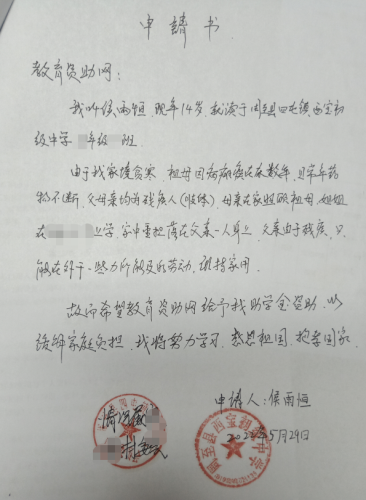 申请书
教育资助网：
我叫侯雨恒，现年14岁，就读于周至县四屯镇西宝初
级中学 年级 班。
由于我家境贫寒，祖母因病瘫痪在床数年，且常年药
物不断，父母亲均为残疾人（肢体）母亲在家照顾祖母，姐姐
在 上学，家中重担落在父亲一人身上，父亲由于残疾，只
能在外干一些力所能及的劳动，维持家用。
故而希望教育资助网给予我助学金资助，以
缓解家庭负担，我将努力学习，感恩祖国，报答国家。
申请人：侯雨恒
5月29日
情况属
周至县西宝初级中学